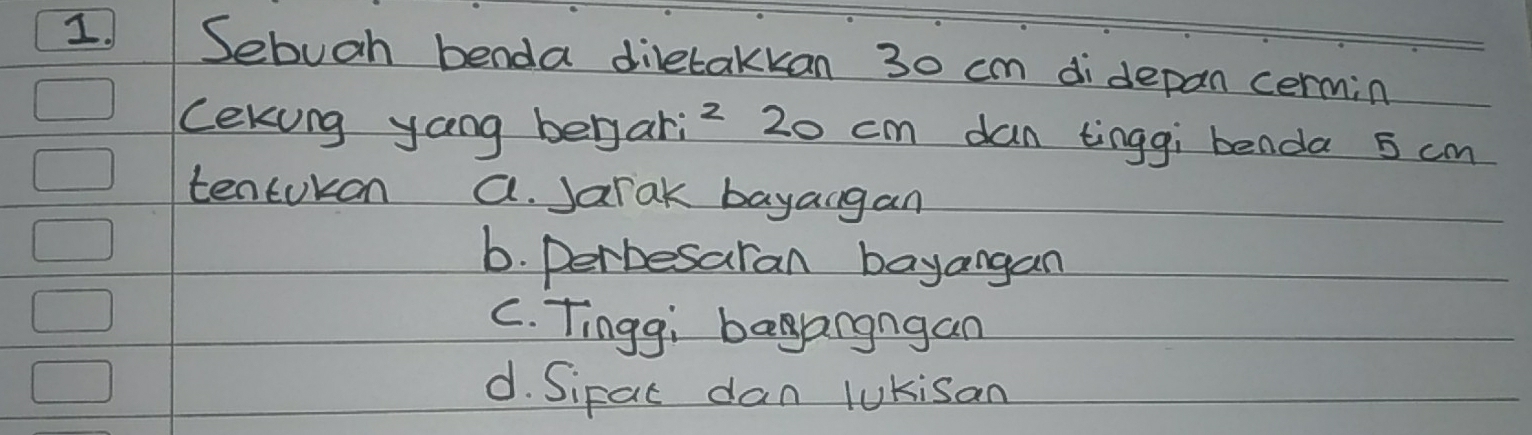 1. Sebuah benda diletakkan 30 cm di depan cermin
Cekung yang berjari² 20 cm dan tinggi benda 5 cm
tentukan a. Jarak bayangan
b. Perbesaran bayangan
c. Tinggi bayangngan
d. Sifat dan lukisan